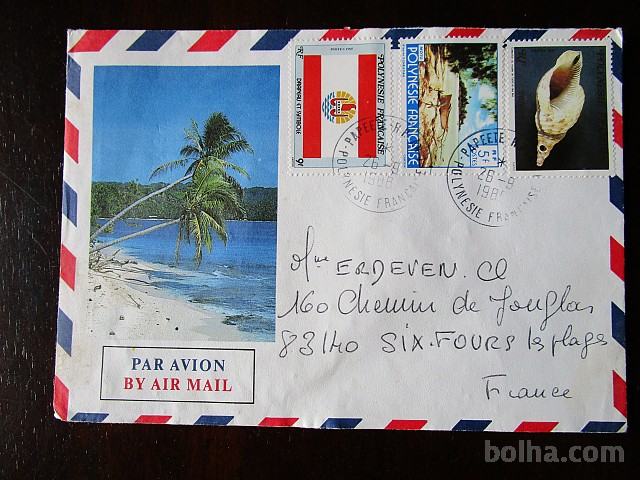 POLYNESIE FRANÇAISE
RF
DRAPEAU ET SYMBOLE
9F
POLYNESIE FRANÇAISE
5F
RF
POSTES
PAPEETE-R
26-8
1986
POLYNESIE FRANÇAISE
PAPEETE-R
26-8
198
POLYNESIE FRANÇAISE
Mme ERDEVEN. Cl
160 Chemin de Jonglas
83140 SIX-FOURS les plages
France
PAR AVION
BY AIR MAIL
bolha.com